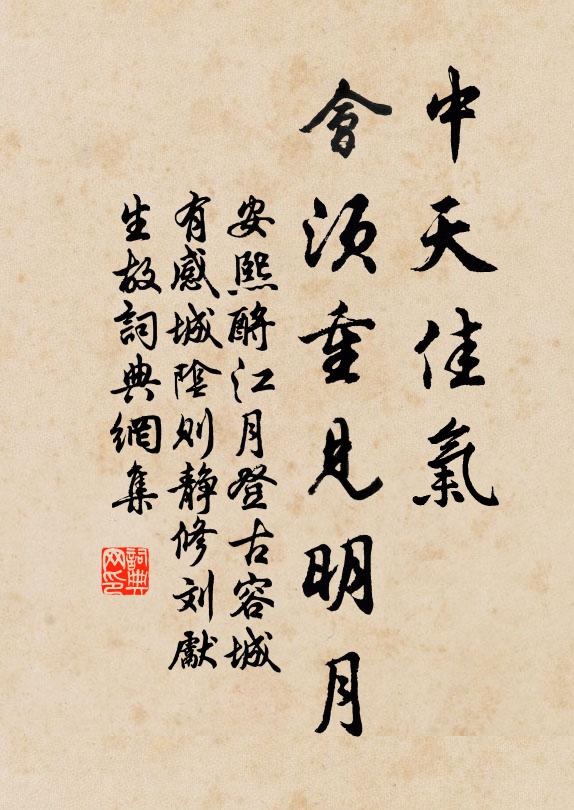 中天佳氣
會須重見明月
安熙酹江月登古容城
有感城陰則靜修刘獻
生故詞典網集
詞典网印